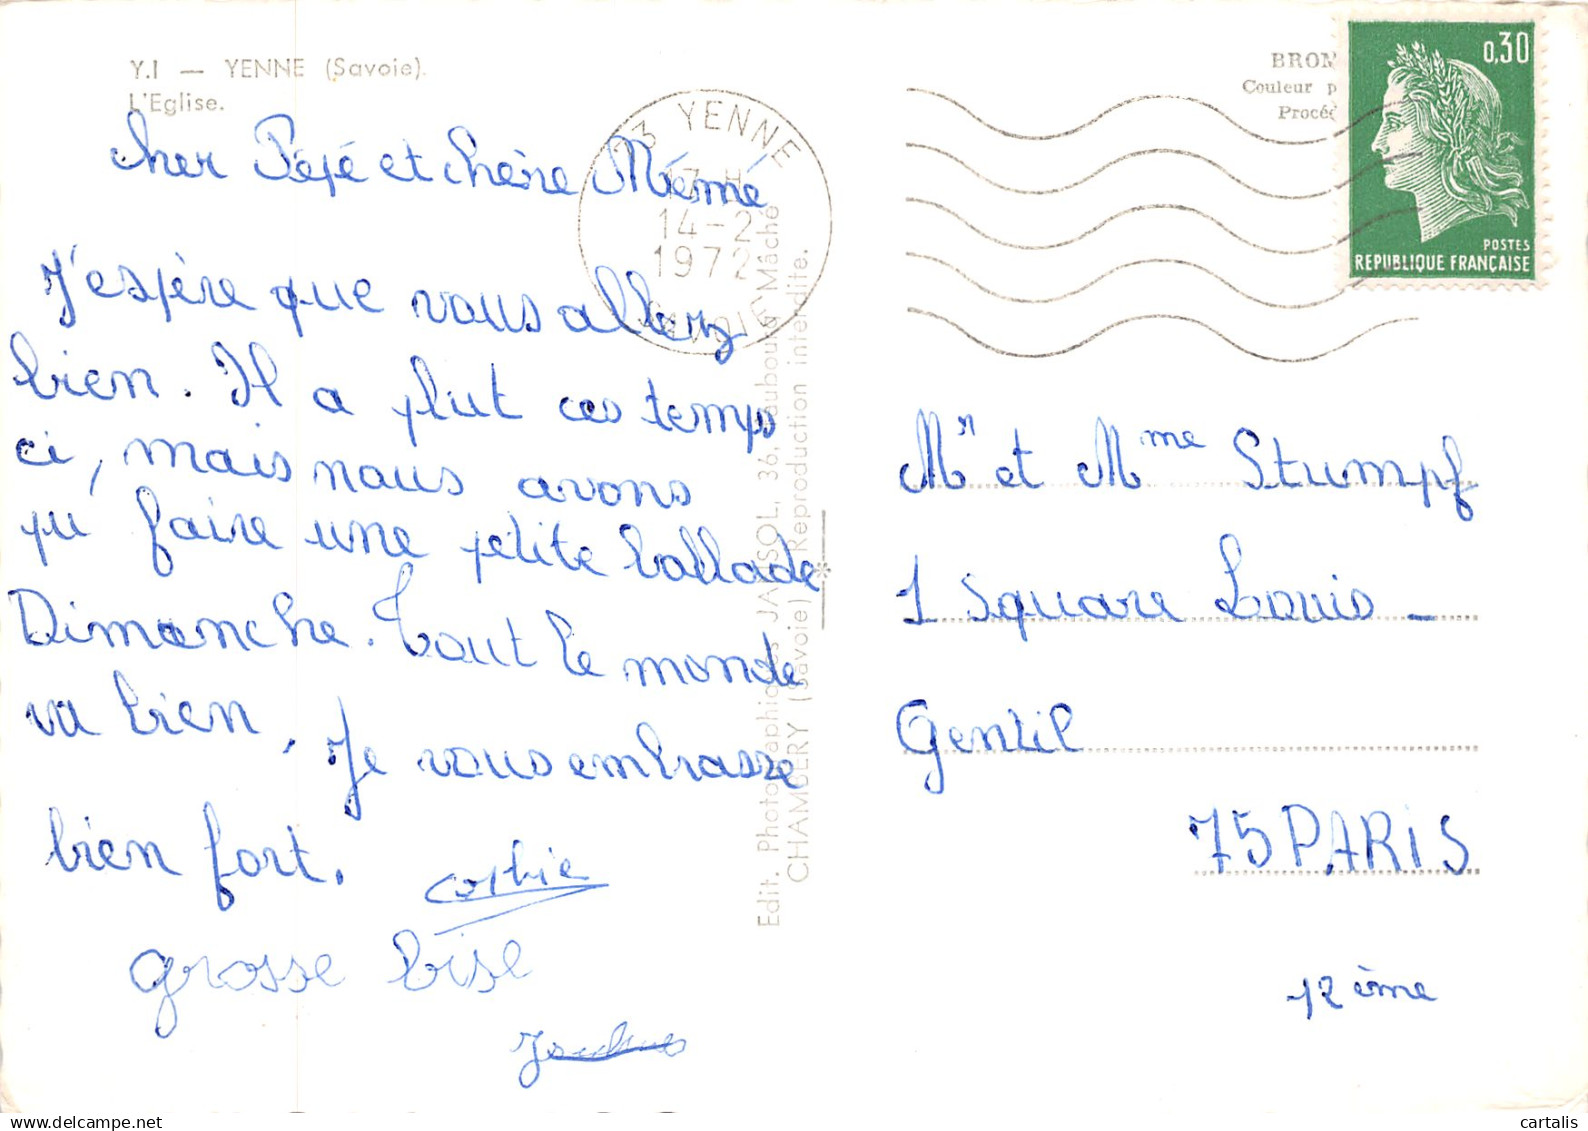 Y.I — YENNE (Savoie).
L'Eglise.
cher Pépé et chère Mémé
J'espère que vous allez
bien. Il a plut ces temps
ci, mais nous avons
pu faire une petite ballade
Dimanche. Tout le monde
va bien, Je vous embrasse
bien fort.
grosse bise
YENNE
17 H
14-2
1972
SAVOIE
Edit. Photographiques JANSOL, 36, Faubourg Mâché
CHAMBÉRY (Savoie) Reproduction interdite.
BROM
Couleur p
Procéd
0,30
POSTES
REPUBLIQUE FRANÇAISE
Mr et Mme Stumpf
1 Square Louis -
Gentil
75 PARIS
12 ème
cartalis
www.delcampe.net